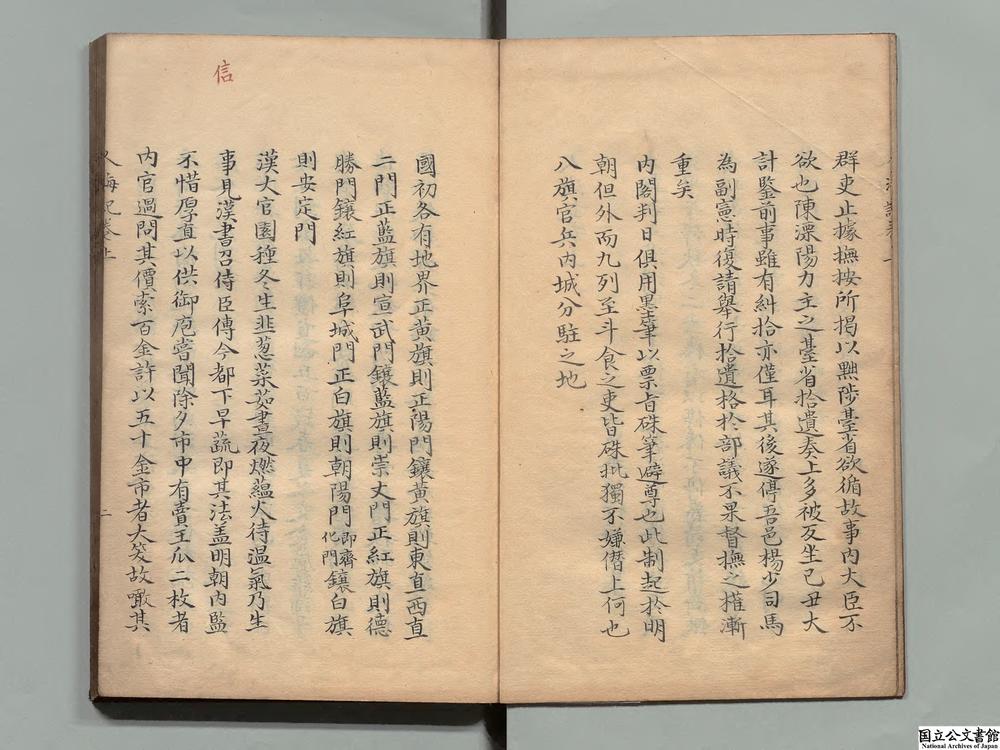 群吏止據撫按所揭以黜陟臺省欲循故事內大臣不
欲也陳溧陽力主之臺省拾遺奏上多被反坐己丑大
計鑒前事雖有糾拾亦僅耳其後遂停吾邑楊少司馬
為副憲時復請舉行拾遺格於部議不果督撫之權漸
重矣
內閣判日俱用墨筆以票旨硃筆避尊也此制起於明
朝但外而九列至斗食之吏皆硃批獨不嫌僭上何也
八旗官兵內城分駐之地
國初各有地界正黃旗則正陽門鑲黃旗則東直西直
二門正藍旗則宣武門鑲藍旗則崇文門正紅旗則德
勝門鑲紅旗則阜城門正白旗則朝陽門即齊化門鑲白旗
則安定門
漢大官園種冬生韭葱菜茹晝夜燃蘊火待溫氣乃生
事見漢書召侍臣傳今都下早蔬即其法盖明朝內監
不惜厚直以供御庖嘗聞除夕市中有賣王瓜二枚者
內官過問其價索百金許以五十金市者大笑故噉其
信
人海記卷上
二
国立公文書館
National Archives of Japan